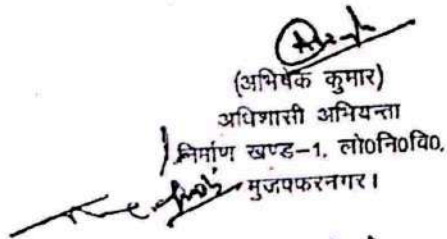 (अभिषेक कुमार)
अधिशासी अभियन्ता
निर्माण खण्ड-1, लो0नि0वि0,
मुजफ्फरनगर।